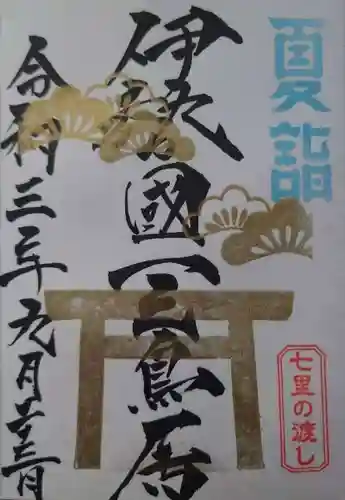 夏詣
伊勢國一鳥居
七里の渡し
令和三年九月二十三日